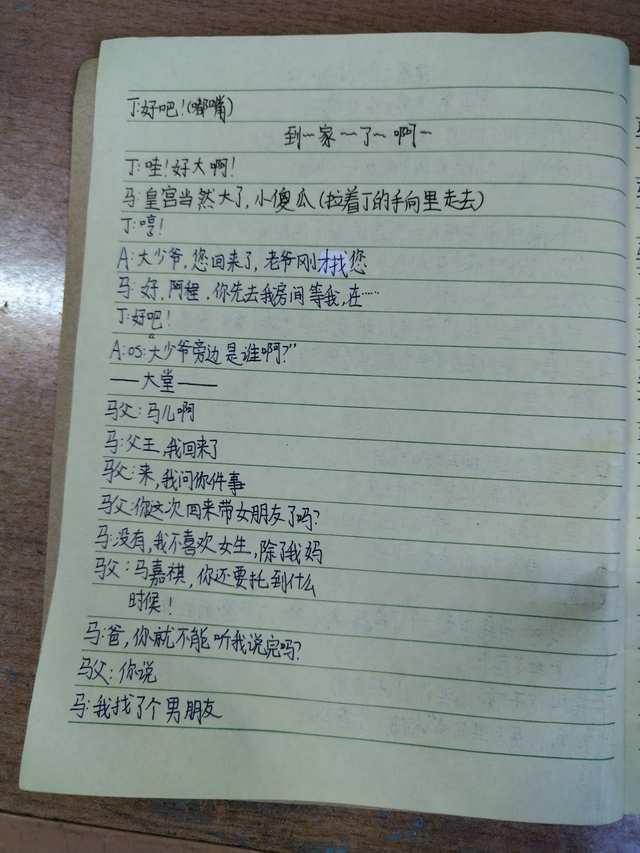 丁:好吧!(嘟嘴)
到~家~了~啊~
丁:哇!好大啊!
马:皇宫当然大了,小傻瓜(拉着丁的手向里走去)
丁:哼!
A:大少爷,您回来了,老爷刚才找您
马:好,阿程,你先去我房间等我,在……
丁:好吧!
A:os:“大少爷旁边是谁啊?”
——大堂——
马父:马儿啊
马:父王,我回来了
马父:来,我问你件事
马父:你这次回来带女朋友了吗?
马:没有,我不喜欢女生,除了我妈
马父:马嘉祺,你还要托到什么
时候!
马:爸,你就不能听我说完吗?
马父:你说
马:我找了个男朋友